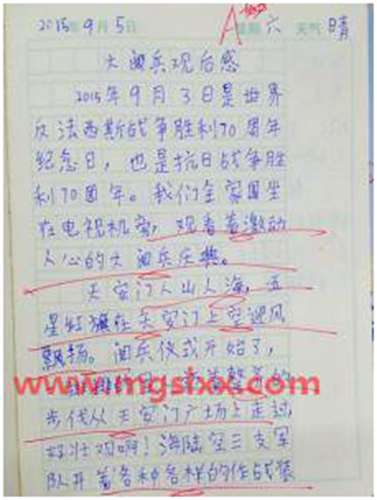 2015年9月5日 星期六 天气晴
A
大阅兵观后感
2015年9月3日是世界
反法西斯战争胜利70周年
纪念日，也是抗日战争胜
利70周年。我们全家围坐
在电视机旁，观看着激动
人心的大阅兵庆典。
天安门人山人海，五
星红旗在天安门上空迎风
飘扬。阅兵仪式开始了，
着整齐的
www.mgslxx.com
步伐从天安门广场上走过，
好壮观啊！海陆空三支军
队开着各种各样的作战装